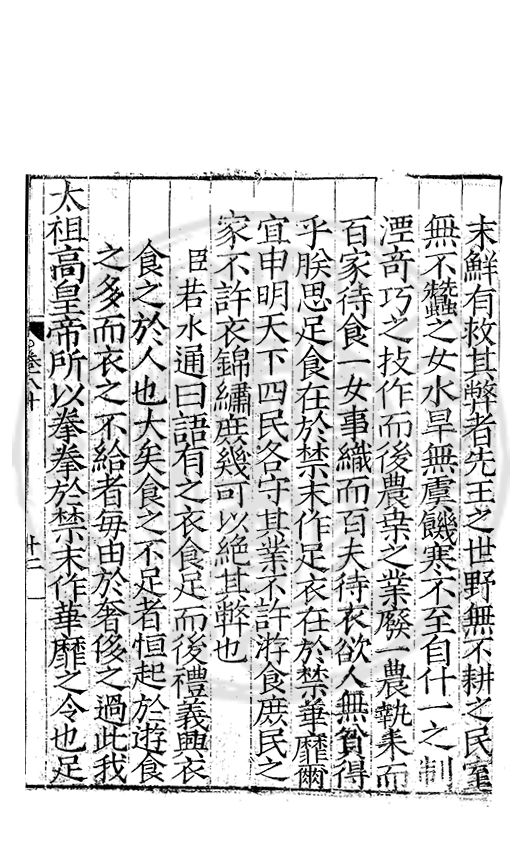 末鮮有救其弊者先王之世野無不耕之民室
無不蠶之女水旱無虞饑寒不至自什一之制
湮竒巧之技作而後農桒之業廢一農執耒而
百家待食一女事織而百夫待衣欲人無貧得
乎朕思足食在於禁末作足衣在於禁華靡爾
宜申明天下四民各守其業不許游食庶民之
家不許衣錦繡庶幾可以絶其弊也
臣若水通曰語有之衣食足而後禮義興衣
食之於人也大矣食之不足者恒起於遊食
之多而衣之不給者每由於奢侈之過此我
太祖高皇帝所以拳拳於禁末作華靡之令也足
卷八十
廿二